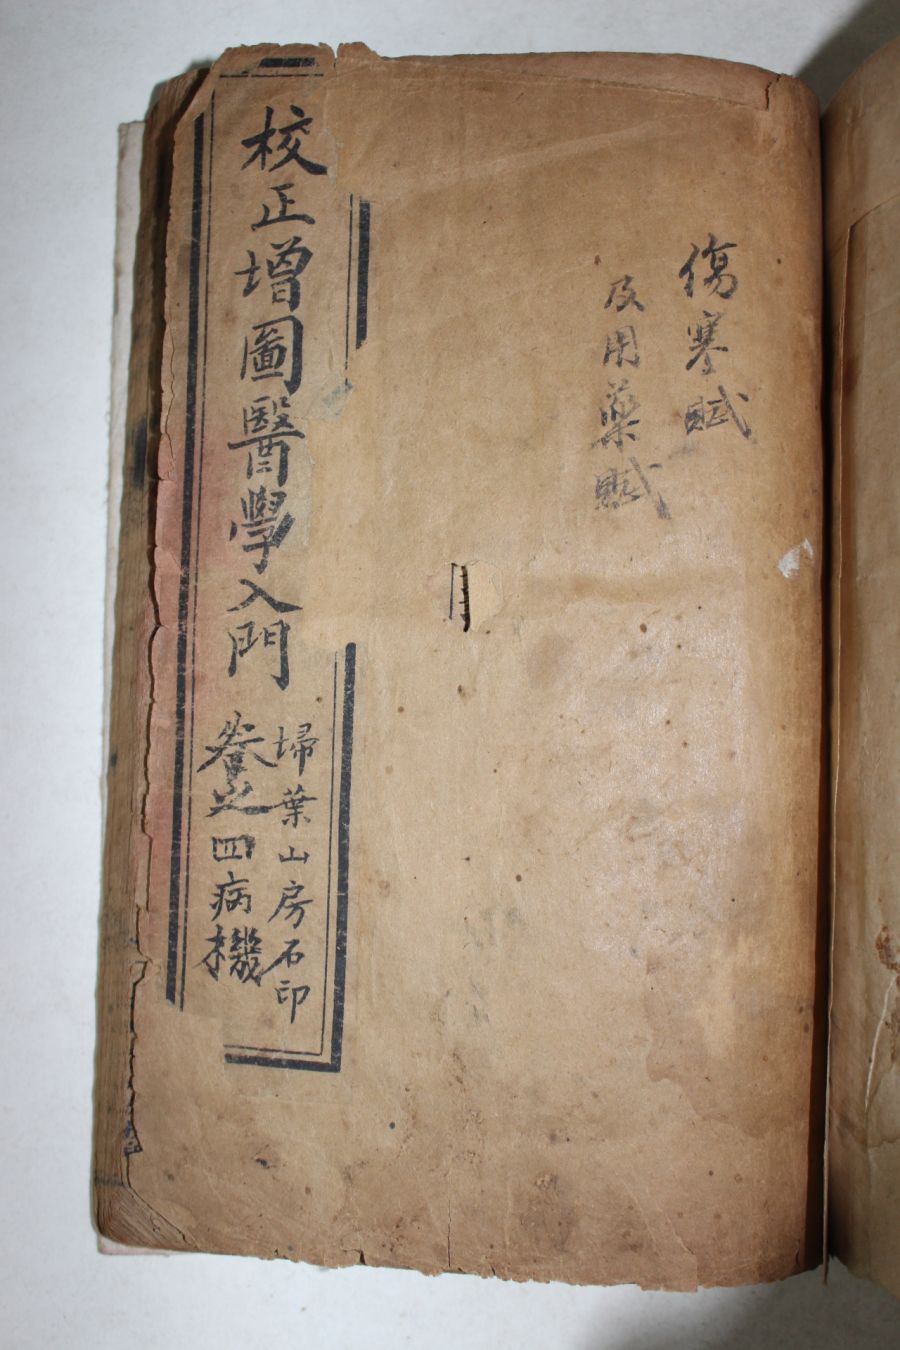 傷寒賦
及用藥賦
校正增圖醫學入門
埽葉山房石印
卷之四病機